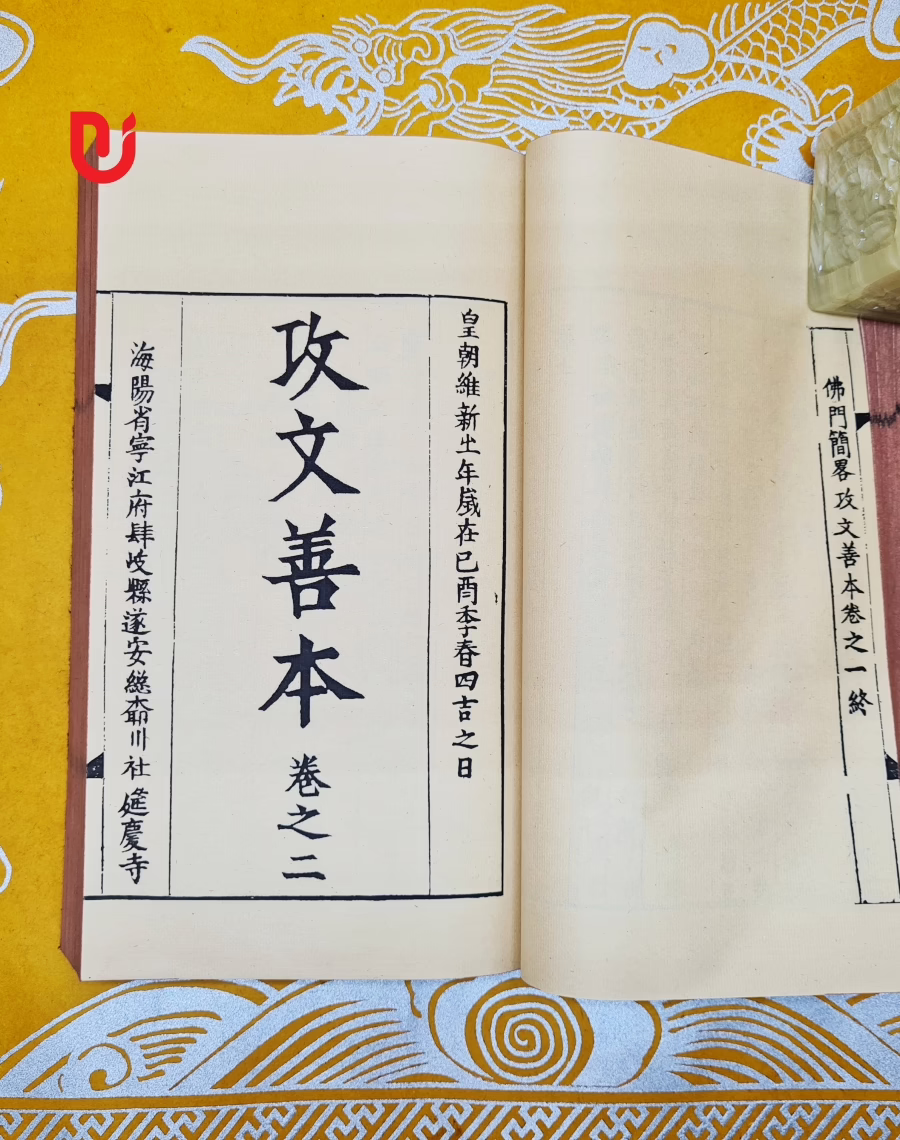 佛門簡畧攻文善本卷之一終
皇朝維新㞢年嵗在已酉季春四吉之日
攻文善本 卷之二
海陽省寧江府肆岐縣遂安総川社 延慶寺